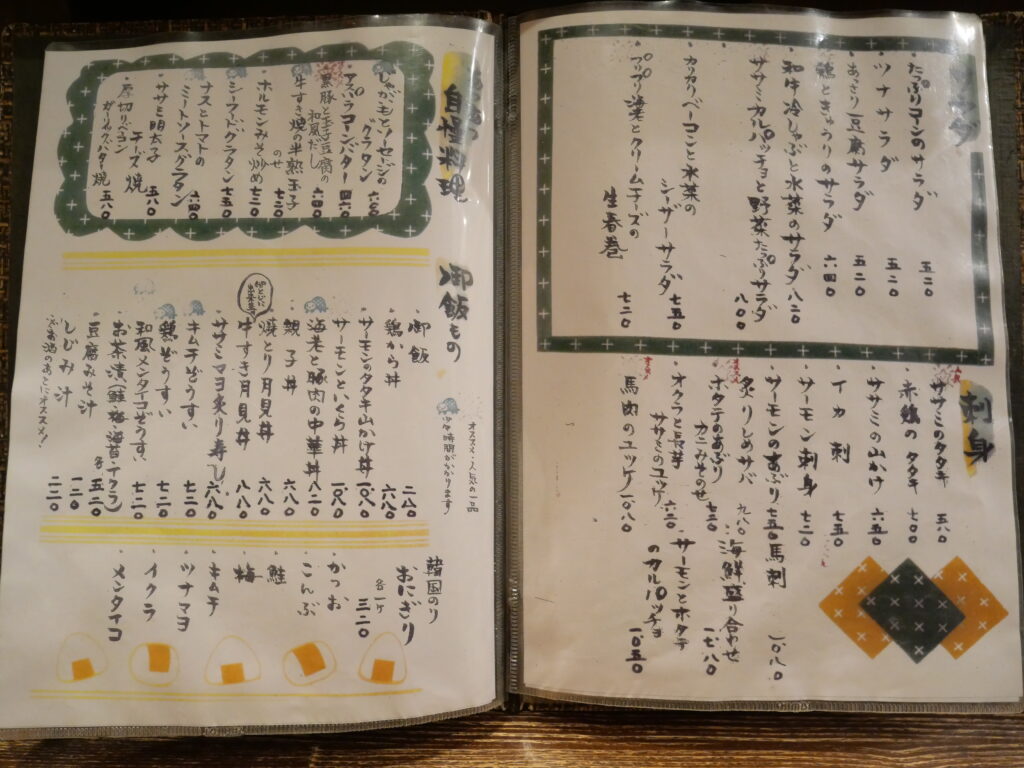 サラダ
・たっぷりコーンのサラダ 五二〇
・ツナサラダ 五二〇
・あっさり豆腐サラダ 五二〇
・鶏ときゅうりのサラダ 六四〇
・和牛冷しゃぶと水菜のサラダ 八二〇
・ササミカルパッチョと野菜たっぷりサラダ 八〇〇
・カリカリベーコンと水菜の
シーザーサラダ 七五〇
・プリプリ海老とクリームチーズの
生春巻 七二〇
刺身
・ササミのタタキ 五八〇
・赤鶏のタタキ 七〇〇
・ササミの山かけ 六五〇
・イカ刺 七五〇
・サーモン刺身 七二〇
・サーモンのあぶり 七五〇
・炙りしめサバ 九八〇
・ホタテのあぶり
カニみそのせ 七五〇
・オクラと長芋
ササミのユッケ 六二〇
・馬肉のユッケ 一〇八〇
・馬刺 一〇八〇
・海鮮盛り合わせ 一七八〇
・サーモンとホタテ
のカルパッチョ 一〇五〇
自慢料理
・じゃがいもとソーセージの
グラタン 六八〇
・アスパラコーンバター
・黒豚と牛すじ豆腐の
和風だし 六四〇
・牛すき焼の半熟玉子
のせ 七二〇
・ホルモンみそ炒め 七二〇
・シーフードグラタン 七五〇
・ナスとトマトの
ミートソースグラタン 六四〇
・ササミ明太子
チーズ焼 五八〇
・厚切りベーコン
ガーリックバター焼 五八〇
オススメ・人気の一品
少々時間がかかります
御飯もの
・御飯 二一〇
・鶏から丼 六八〇
・サーモンのタタキ山かけ丼 一〇八〇
・サーモンといくら丼 一〇八〇
・海老と豚肉の中華丼 八二〇
・親子丼 六八〇
・焼とり月見丼 六八〇
・牛すき月見丼 八八〇
・ササミマヨ炙り寿し 六八〇
・キムチぞうすい 七二〇
・鶏ぞうすい 七二〇
・和風メンタイコぞうすい 七二〇
・お茶漬(鮭・梅・海苔・イクラ) 各五二〇
・豆腐みそ汁 一二〇
・しじみ汁 二二〇
お酒のあとにオススメ!
韓国のり
おにぎり
各一ケ 三二〇
・かつお
・こんぶ
・鮭
・梅
・キムチ
・ツナマヨ
・イクラ
・メンタイコ